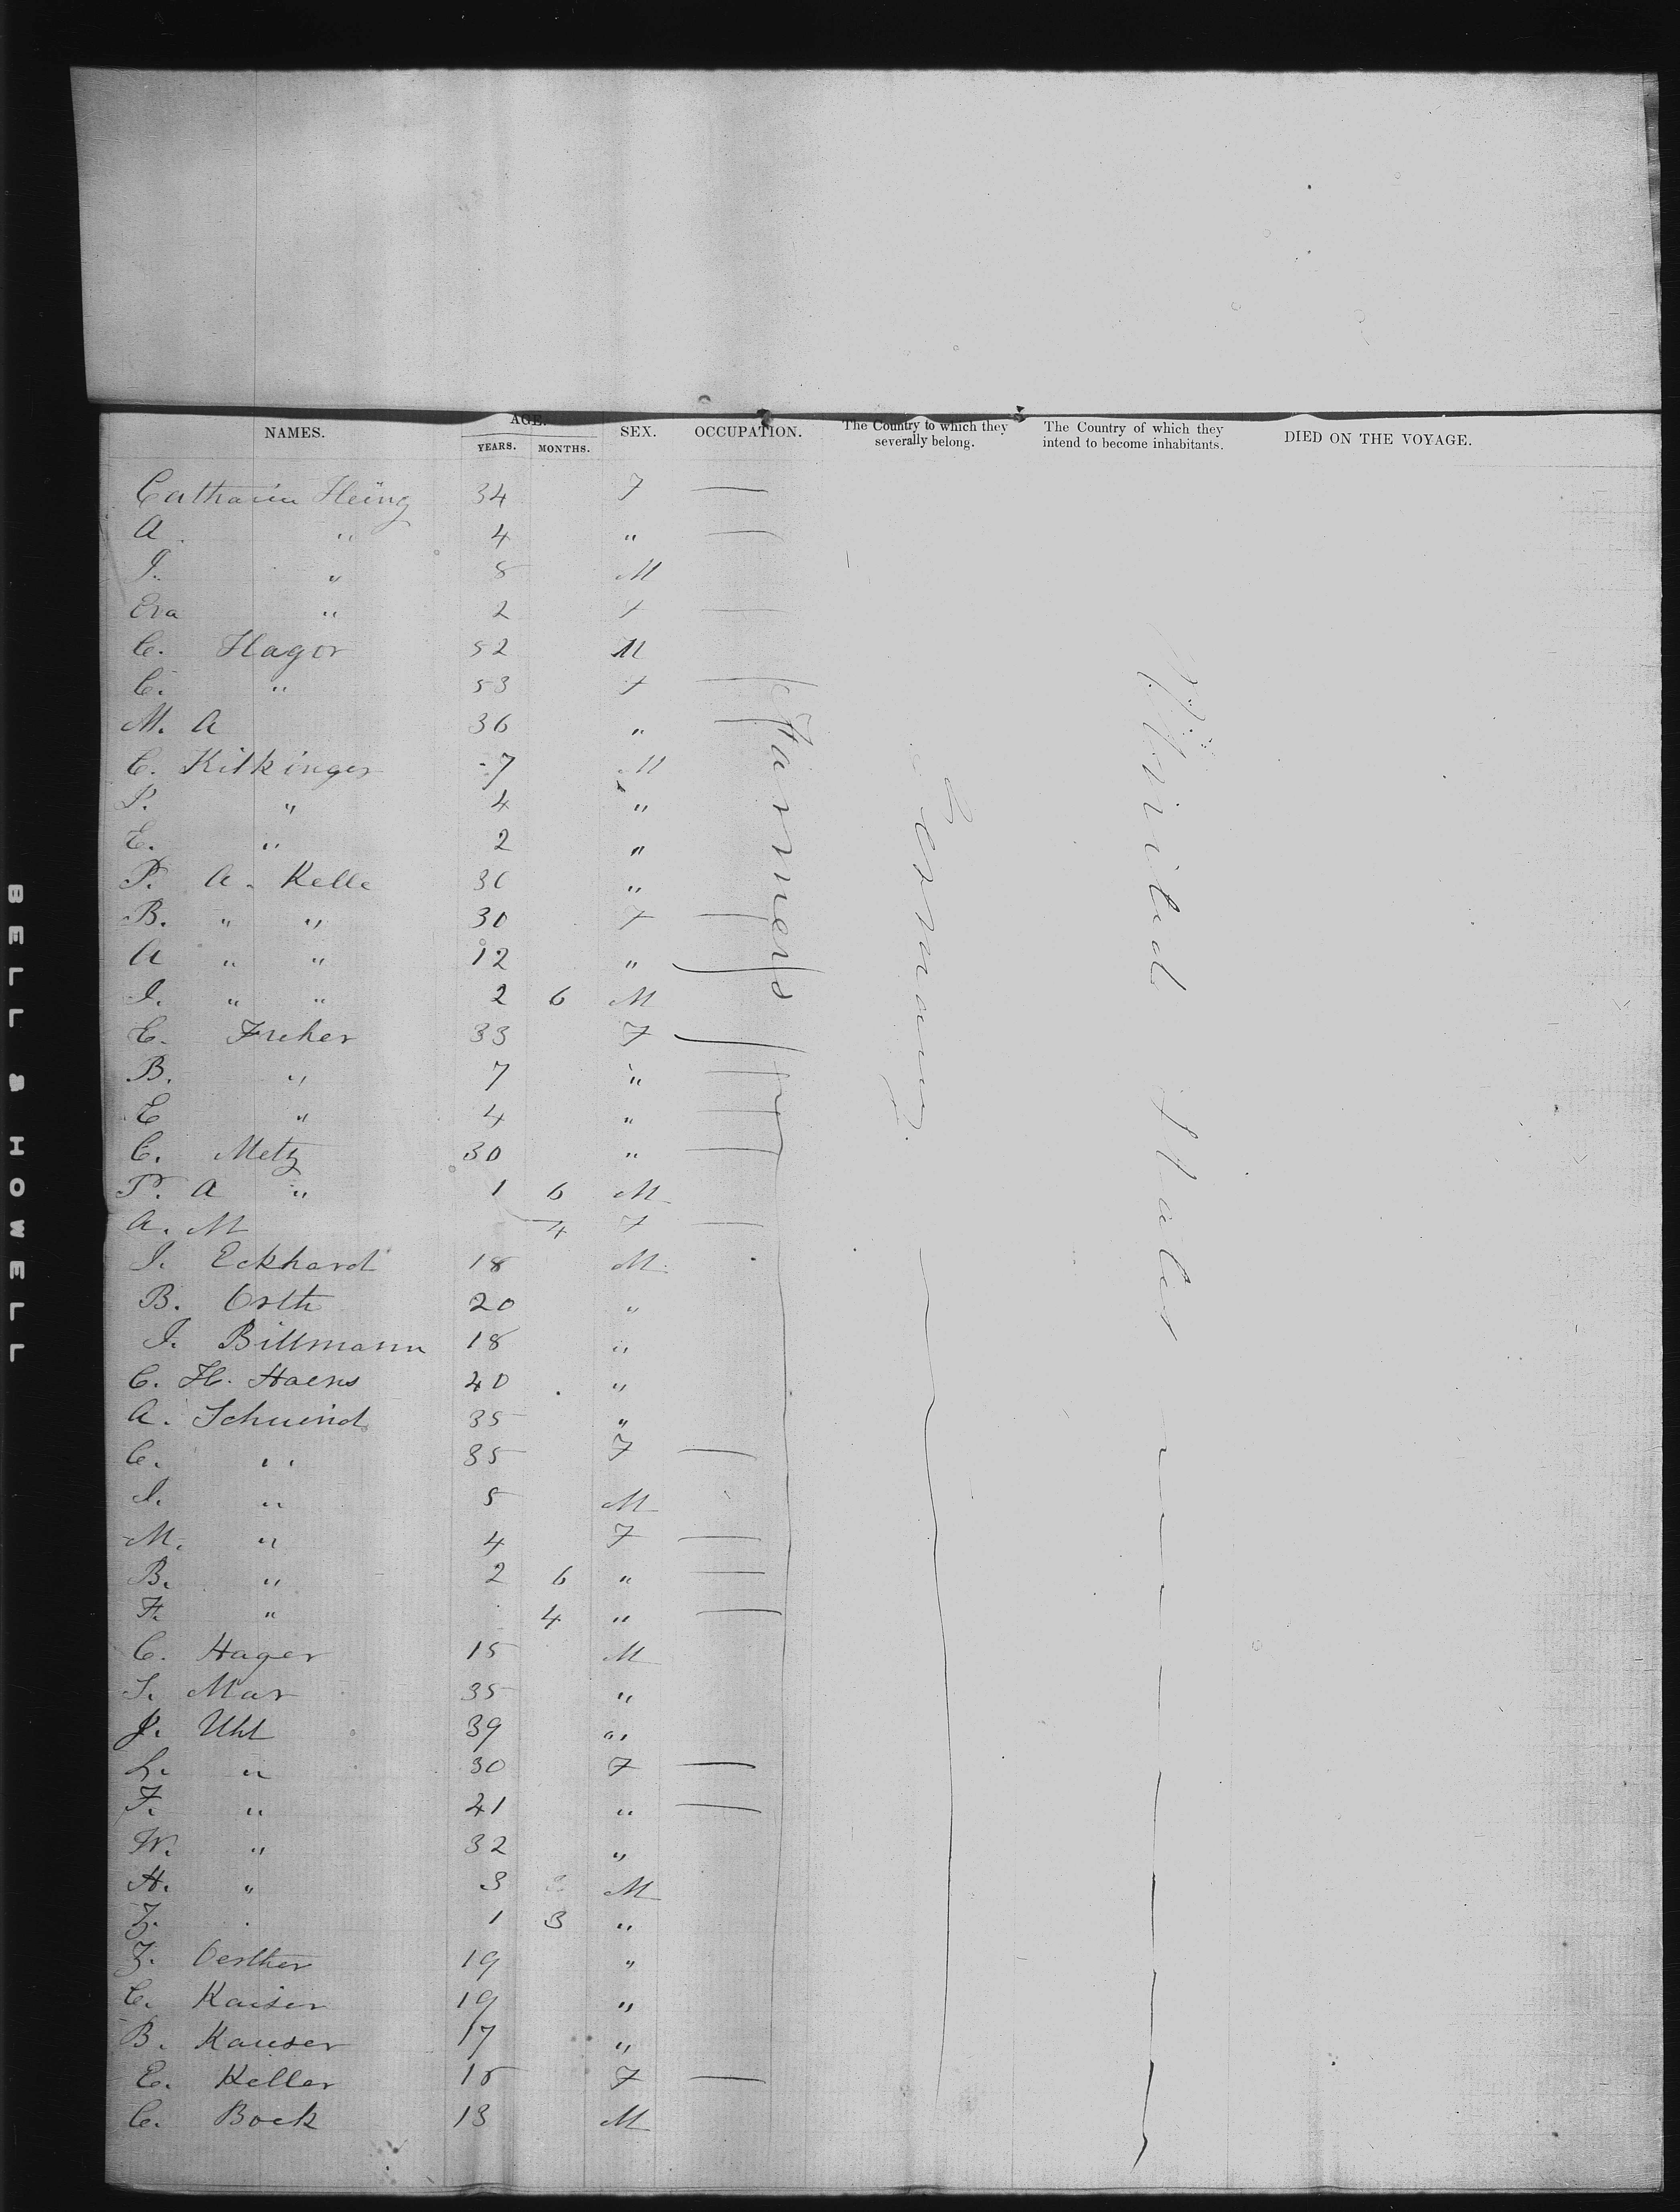 NAMES. AGE. YEARS. MONTHS. SEX. OCCUPATION. The Country to which they severally belong. The Country of which they intend to become inhabitants. DIED ON THE VOYAGE.
Catharin Heing 34 F —
A. " 4 " —
J. " 8 M
Eva " 2 F —
C. Hagor 52 M
C. " 53 F —
M. A 36 " —
C. Kilkinger 7 M
P. " 4 "
E. " 2 "
P. A. Kelle 30 "
B. " " 30 F —
A " " 12 "
J. " " 2 6 M
E. Freher 33 F
B. " 7 " —
E " 4 " —
C. Metz 30 " —
P. A " 1 6 M
A. M 4 F —
J. Eckhard 18 M
B. Orth 20 "
J. Billmann 18 "
C. H. Haens 40 "
A. Schwind 35 "
C. " 35 F —
J. " 5 M
M. " 4 F —
B. " 2 6 " —
F. " 4 " —
C. Hager 15 M
S. Mar 35 "
J. Uhl 39 "
L. " 30 F —
F. " 41 " —
W. " 32 "
H. " 3 M
Z. 1 3 "
Z. Oerther 19 "
C. Kaiser 19 "
B. Kauser 17 "
E. Keller 18 F —
C. Bock 13 M
Farmers
Germany.
United States
BELL & HOWELL